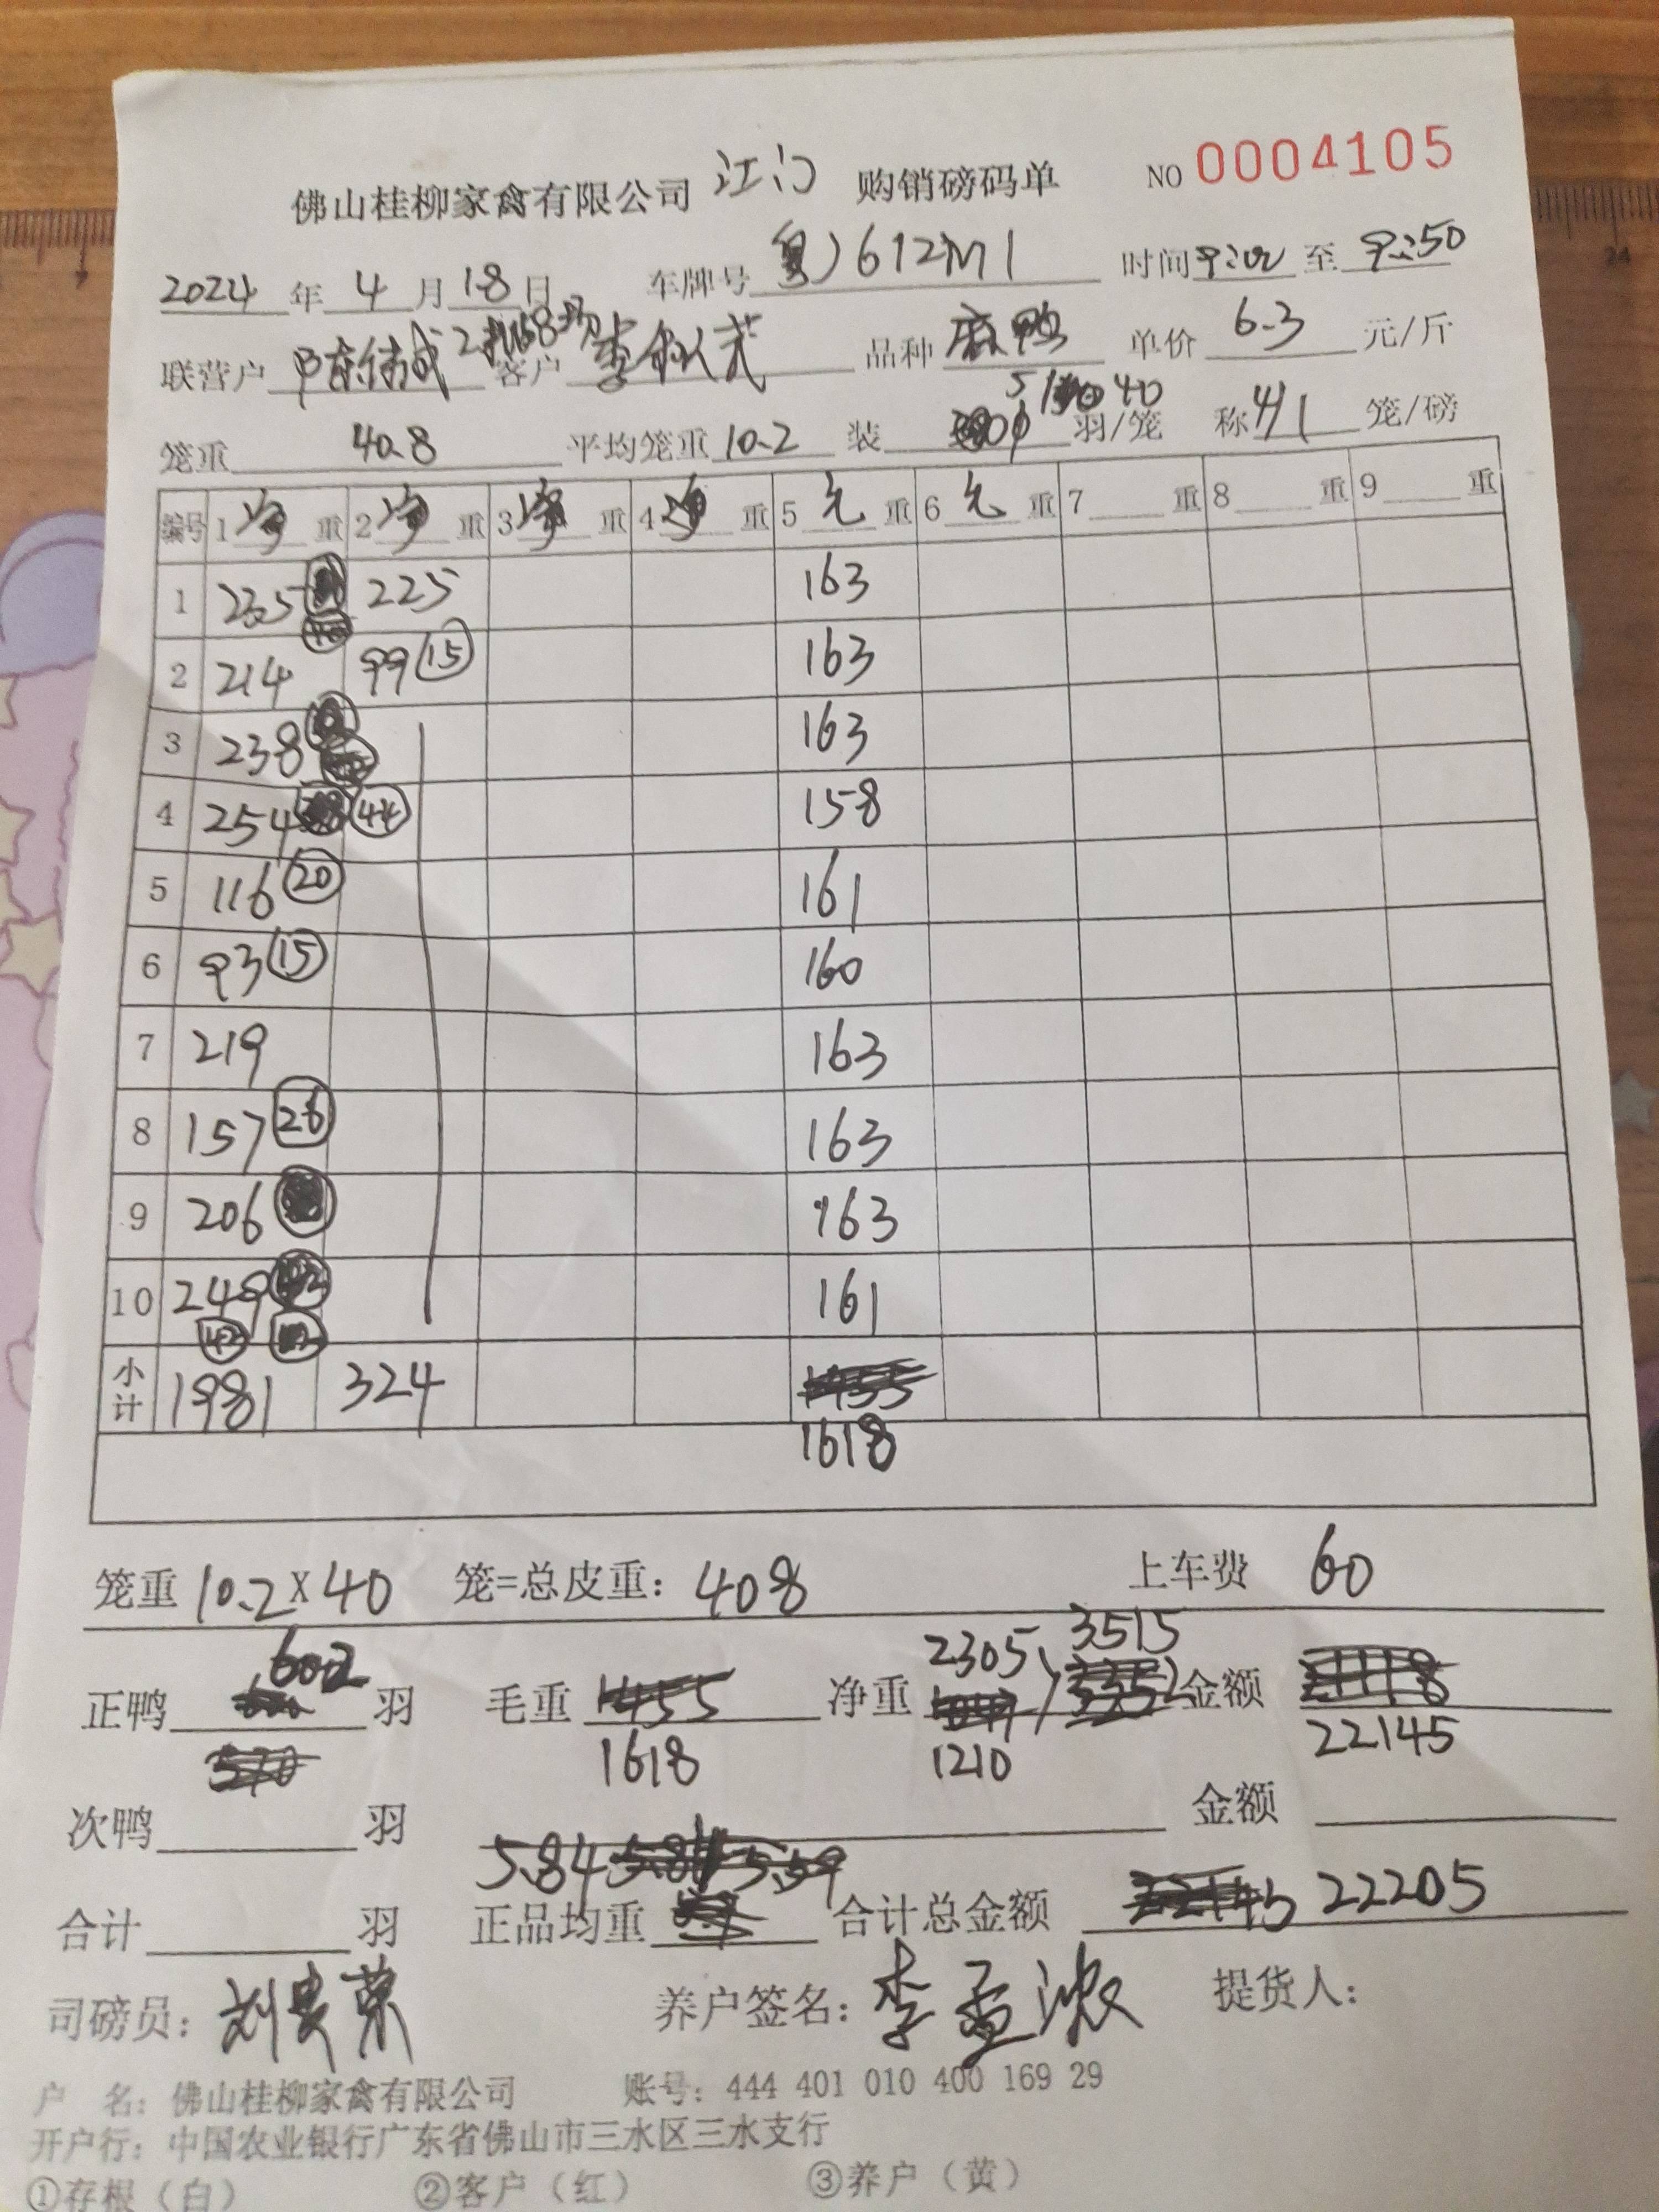 佛山桂柳家禽有限公司 江门 购销磅码单 NO 0004105
2024 年 4 月 18 日 车牌号 粤J612M1 时间 至 9:50
联营户 客户 品种 麻鸭 单价 6.3 元/斤
笼重 40.8 平均笼重 10.2 装 羽/笼 称 4/1 笼/磅
编号 1 净 重 2 净 重 3 净 重 4 净 重 5 毛 重 6 毛 重 7 重 8 重 9 重
1 235 225 163
2 214 99 15 163
3 238 163
4 254 44 158
5 116 20 161
6 93 15 160
7 219 163
8 157 26 163
9 206 163
10 249 161
小计 1981 324 1618
笼重 10.2 X 40 笼=总皮重: 408 上车费 60
正鸭 602 羽 毛重 1618 净重 2305 1210 3515 金额 22145
次鸭 羽 金额
合计 羽 正品均重 5.84 合计总金额 22205
司磅员: 刘贵荣 养户签名: 李孟浓 提货人:
户 名: 佛山桂柳家禽有限公司 账号: 444 401 010 400 169 29
开户行: 中国农业银行广东省佛山市三水区三水支行
①存根（白） ②客户（红） ③养户（黄）